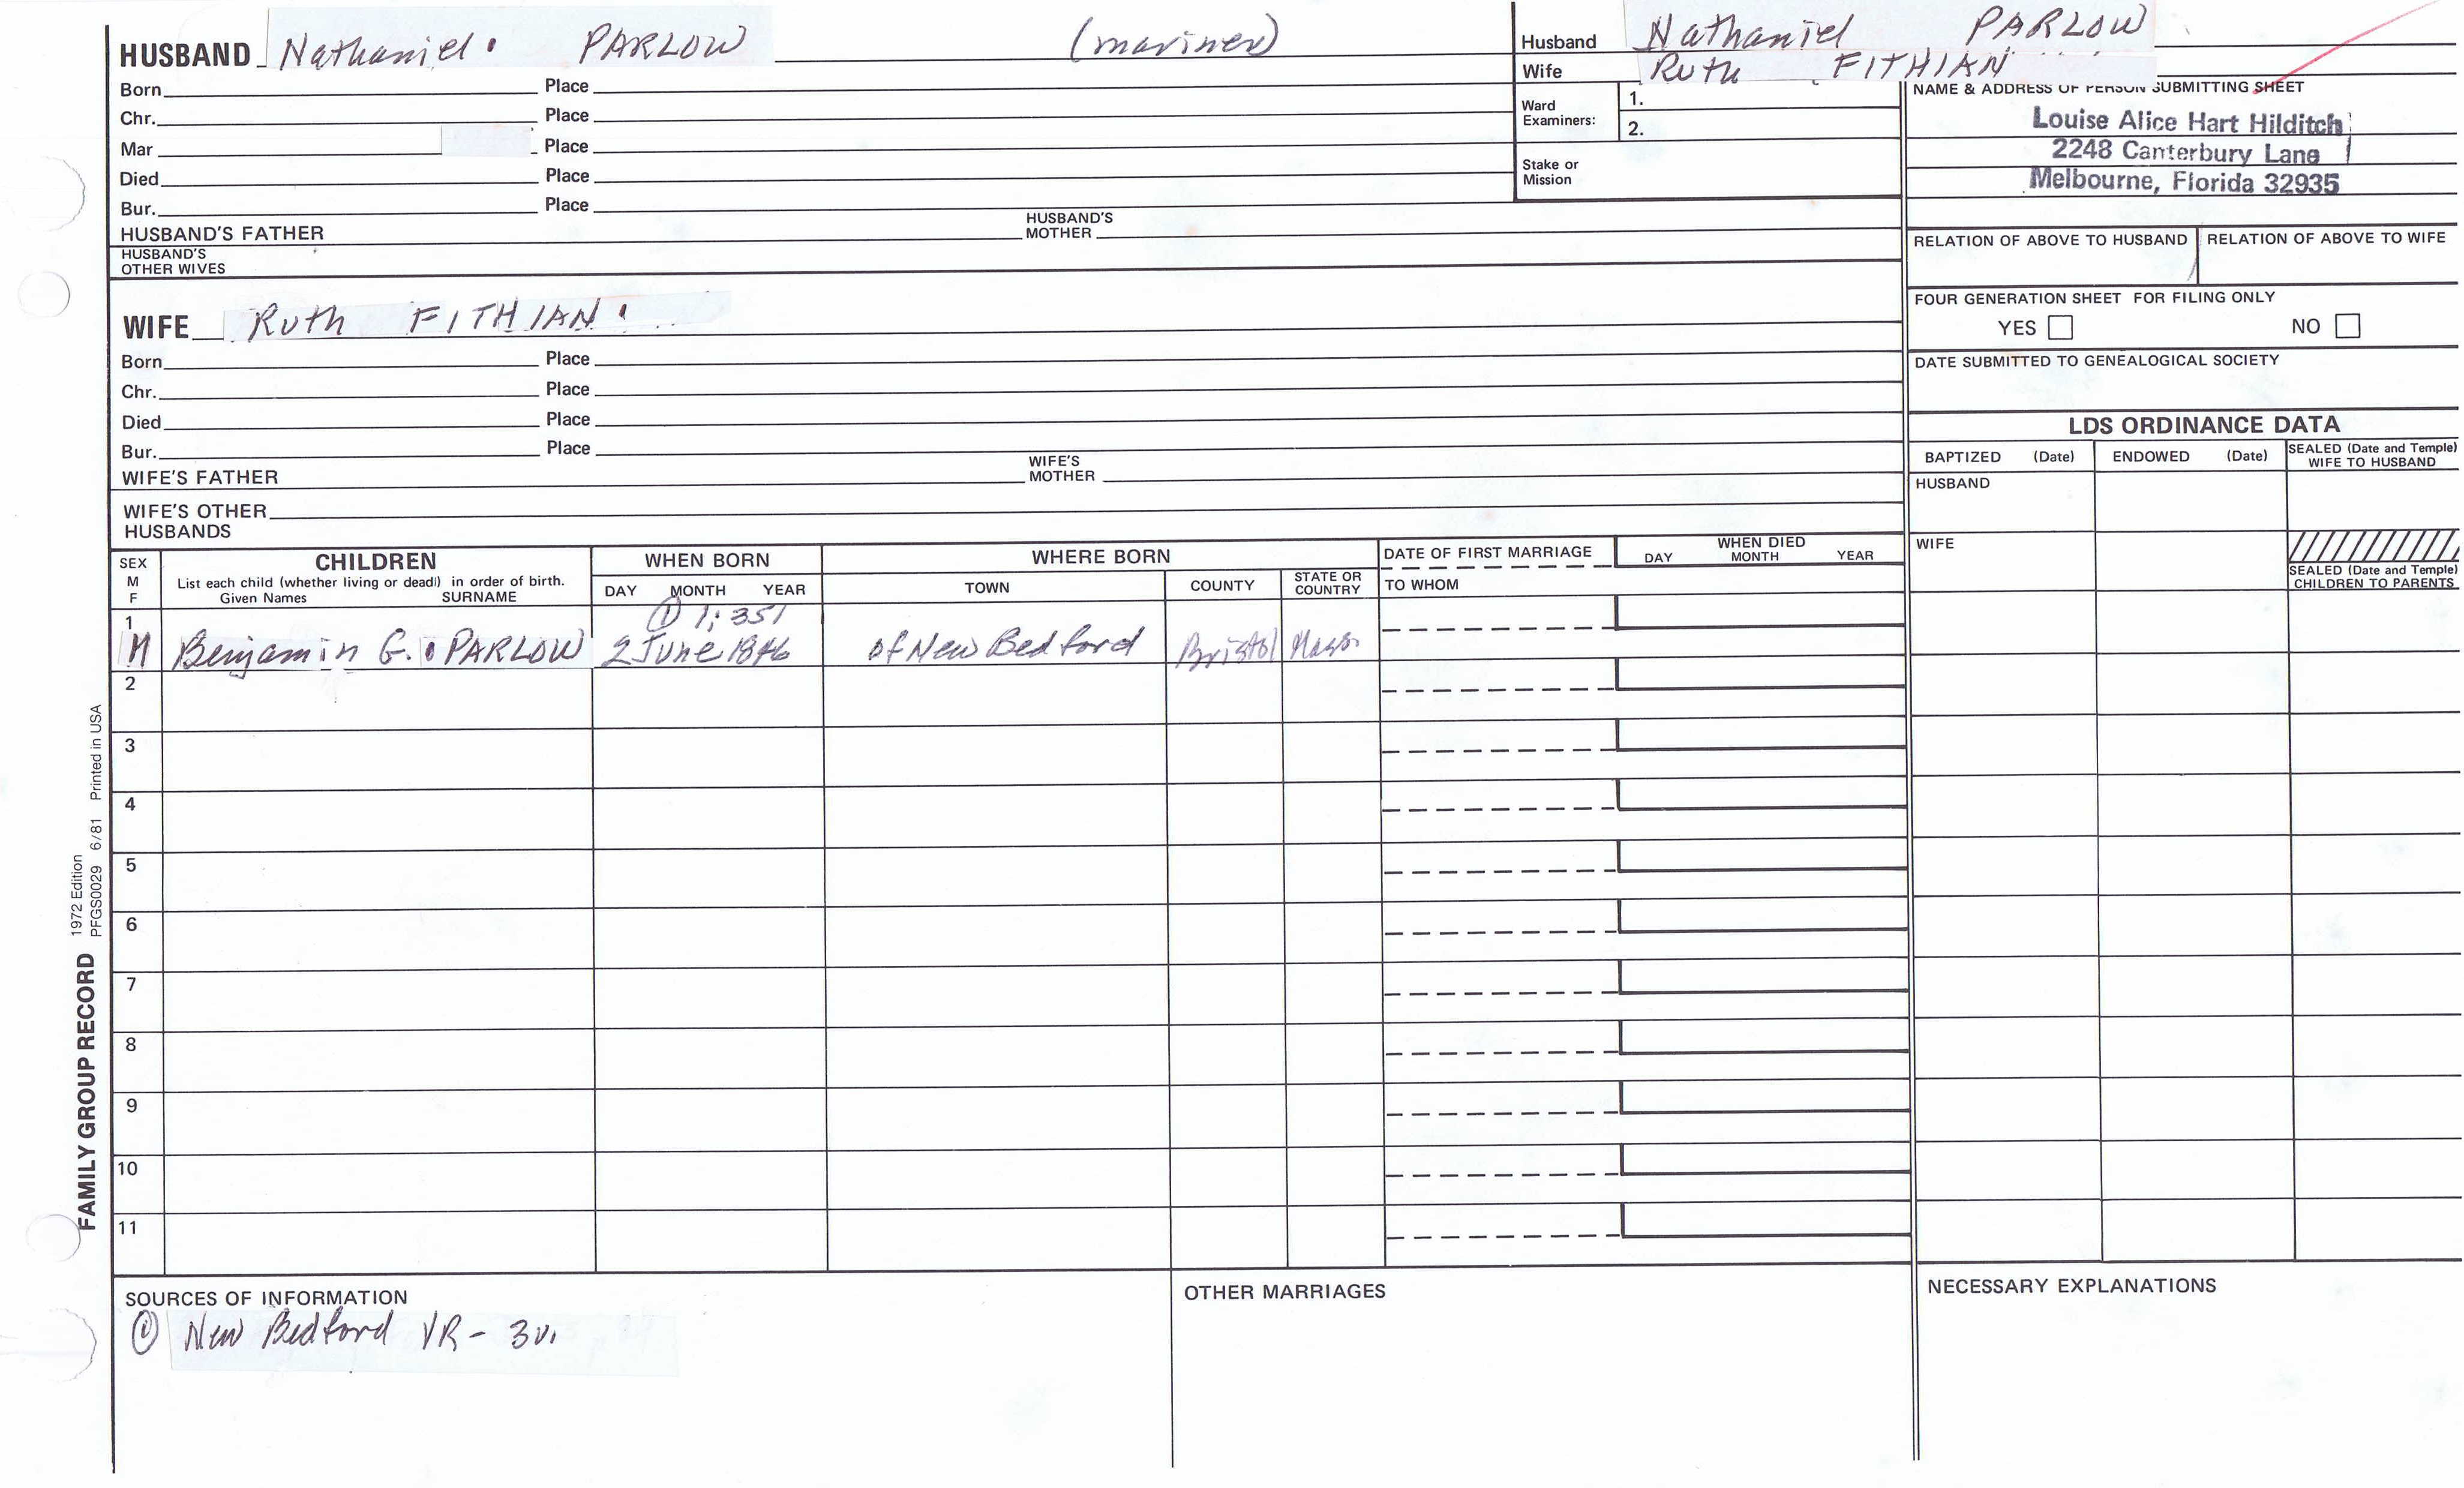 HUSBAND Nathaniel PARLOW (mariner)
Born Place
Chr. Place
Mar Place
Died Place
Bur. Place
HUSBAND'S FATHER HUSBAND'S MOTHER
HUSBAND'S OTHER WIVES
Husband Nathaniel PARLOW
Wife Ruth FITHIAN
Ward Examiners: 1.
2.
Stake or Mission
NAME & ADDRESS OF PERSON SUBMITTING SHEET
Louise Alice Hart Hilditch
2248 Canterbury Lane
Melbourne, Florida 32935
RELATION OF ABOVE TO HUSBAND RELATION OF ABOVE TO WIFE
FOUR GENERATION SHEET FOR FILING ONLY
YES NO
DATE SUBMITTED TO GENEALOGICAL SOCIETY
WIFE Ruth FITHIAN
Born Place
Chr. Place
Died Place
Bur. Place
WIFE'S FATHER WIFE'S MOTHER
WIFE'S OTHER HUSBANDS
LDS ORDINANCE DATA
BAPTIZED (Date) ENDOWED (Date) SEALED (Date and Temple) WIFE TO HUSBAND
HUSBAND
WIFE
SEALED (Date and Temple) CHILDREN TO PARENTS
SEX M F
CHILDREN
List each child (whether living or dead) in order of birth.
Given Names SURNAME
WHEN BORN
DAY MONTH YEAR
WHERE BORN
TOWN COUNTY STATE OR COUNTRY
DATE OF FIRST MARRIAGE
TO WHOM
WHEN DIED
DAY MONTH YEAR
① 1:351
1 M Benjamin G. PARLOW 2 June 1846 of New Bedford Bristol Mass.
2
3
4
5
6
7
8
9
10
11
SOURCES OF INFORMATION
① New Bedford VR - 3v.
OTHER MARRIAGES
NECESSARY EXPLANATIONS
FAMILY GROUP RECORD
1972 Edition
PFGS0029 6/81 Printed in USA